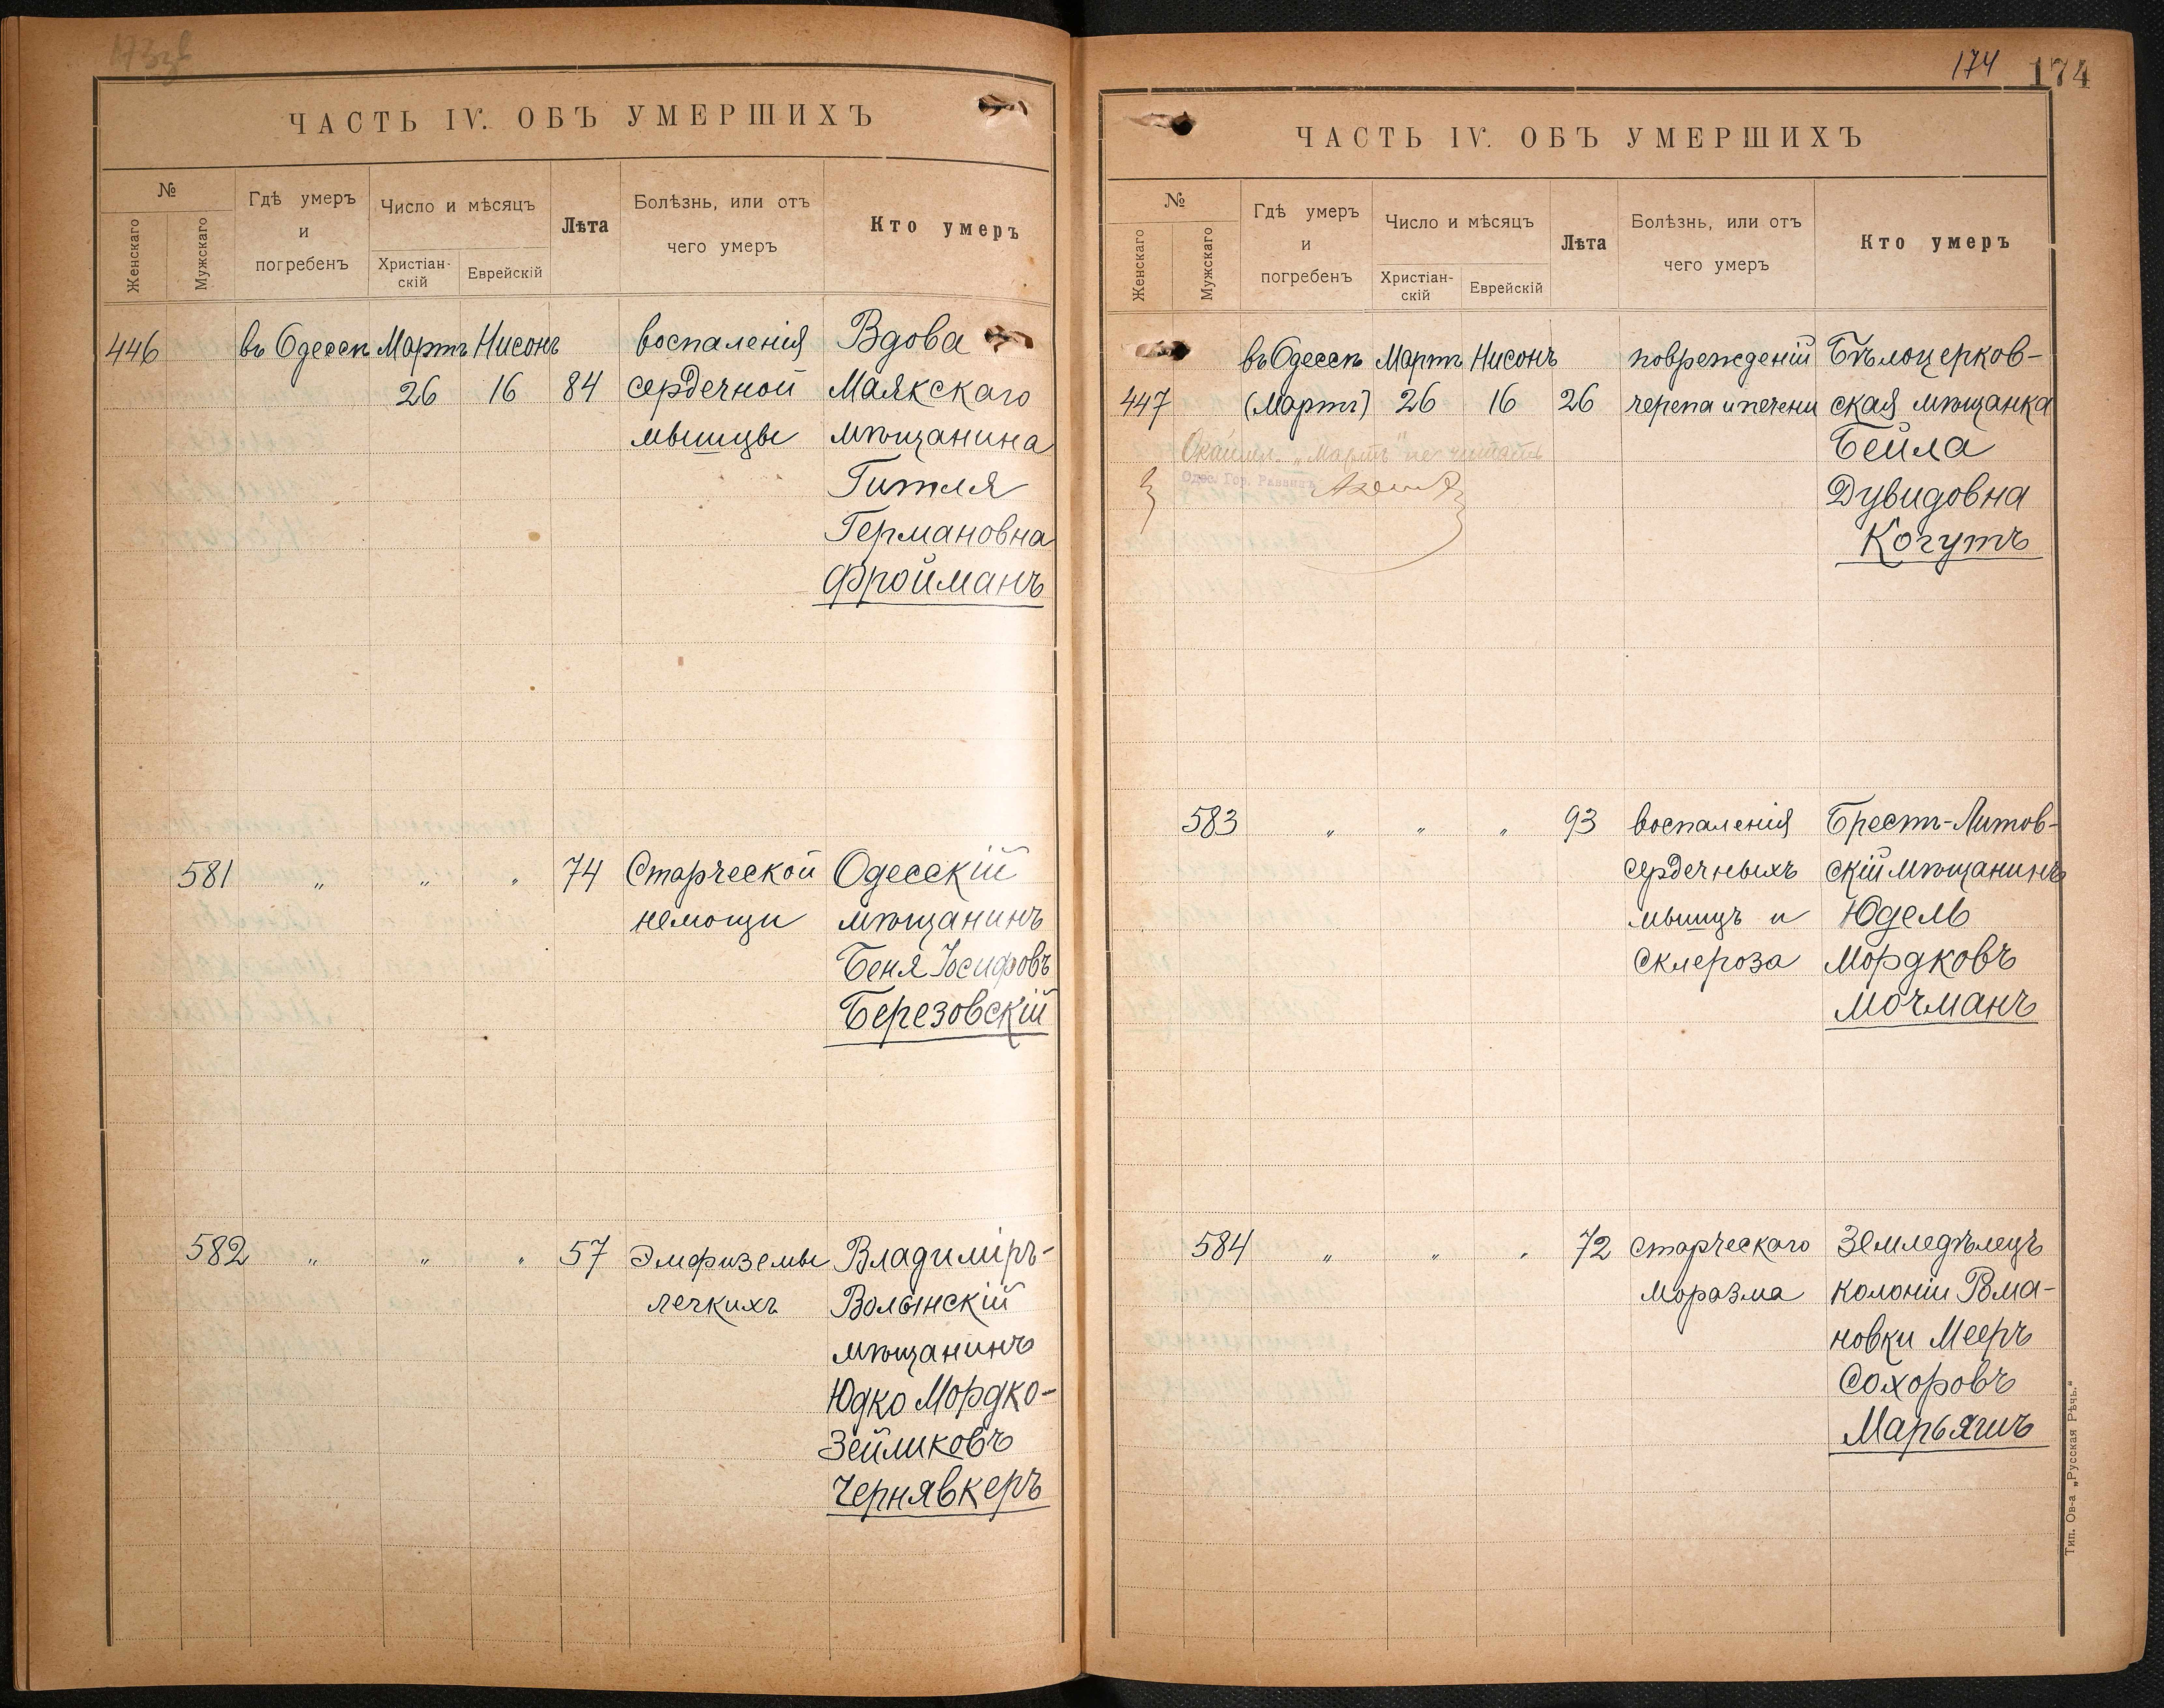 173 об
ЧАСТЬ IV. ОБЪ УМЕРШИХЪ
№
Женскаго
Мужскаго
Гдѣ умеръ
и
погребенъ
Число и мѣсяцъ
Христіан-
скій
Еврейскій
Лѣта
Болѣзнь, или отъ
чего умеръ
Кто умеръ
446 въ Одессѣ Мартъ Нисонъ воспаленія Вдова
26 16 84 сердечной Маякскаго
мышцы мѣщанина
Гитля
Германовна
Фройманъ
581 „ „ „ 74 Старческой Одесскій
немощи мѣщанинъ
Беня Іосифовъ
Березовскій
582 „ „ „ 57 Эмфиземы Владиміръ-
легкихъ Волынскій
мѣщанинъ
Юдко Мордко-
Зейликовъ
Чернявкеръ
174 174
ЧАСТЬ IV. ОБЪ УМЕРШИХЪ
№
Женскаго
Мужскаго
Гдѣ умеръ
и
погребенъ
Число и мѣсяцъ
Христіан-
скій
Еврейскій
Лѣта
Болѣзнь, или отъ
чего умеръ
Кто умеръ
въ Одессѣ Мартъ Нисонъ поврежденій Бѣлоцерков-
447 (Мартъ) 26 16 26 черепа и печени ская мѣщанка
„Мартъ" не читать Бейла
Одес. Гор. Раввинъ Дувидовна
Когутъ
583 „ „ „ 93 воспаленія Брестъ-Литов-
сердечныхъ скій мѣщанинъ
мышцъ и Юдель
склероза Мордковъ
Мочманъ
584 „ „ „ 72 старческаго Земледѣлецъ
моразма колоніи Рома-
новки Мееръ
Сохоровъ
Марьяшъ
Тип. Ов-а „Русская Рѣчь."